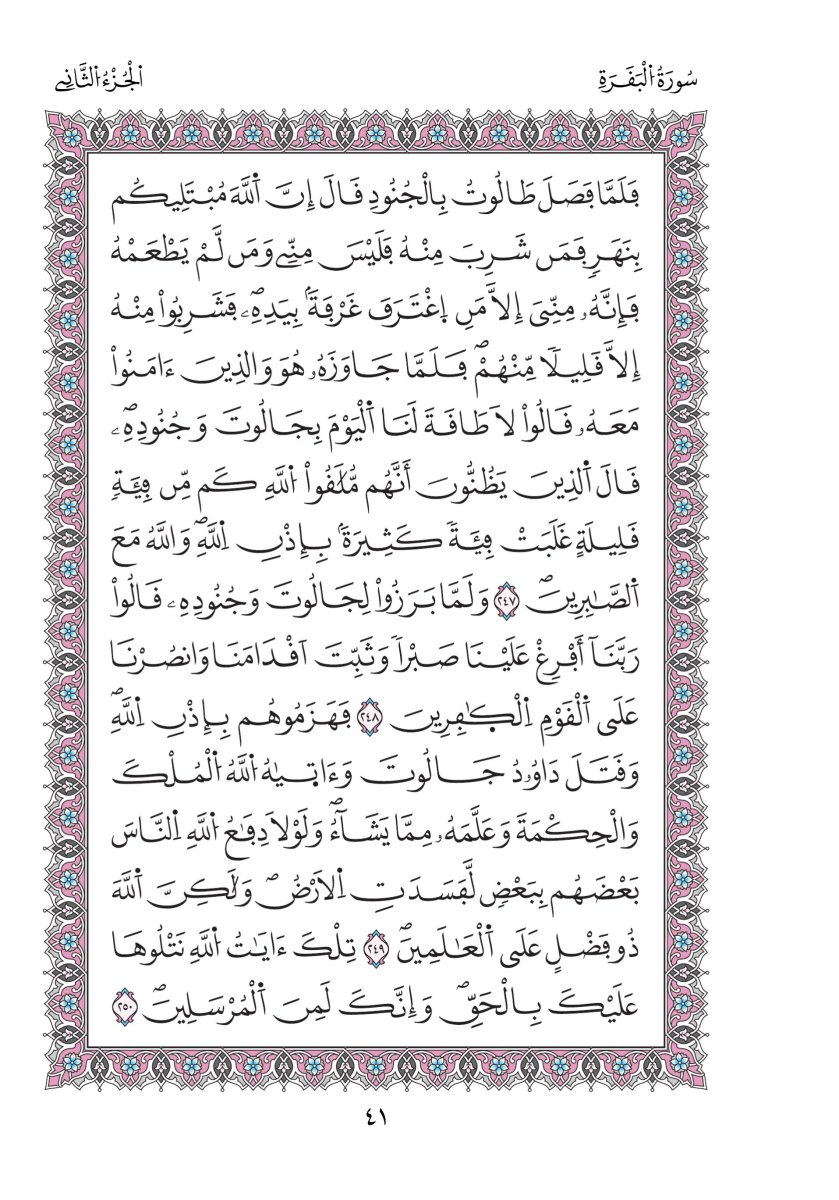 سُورَةُ اُلْبَقَرَةِ
اُلْجُزْءُ اُلثَّانِے
فَلَمَّا فَصَلَ طَالُوتُ بِالْجُنُودِ قَالَ إِنَّ اَ۬للَّهَ مُبْتَلِيكُم
بِنَهَرٖ فَمَن شَرِبَ مِنْهُ فَلَيْسَ مِنِّے وَمَن لَّمْ يَطْعَمْهُ
فَإِنَّهُۥ مِنِّيَ إِلاَّ مَنِ اِ۪غْتَرَفَ غَرْفَةَۢ بِيَدِهِۦۖ فَشَرِبُواْ مِنْهُ
إِلاَّ قَلِيلٗا مِّنْهُمْۖ فَلَمَّا جَاوَزَهُۥ هُوَ وَالذِينَ ءَامَنُواْ
مَعَهُۥ قَالُواْ لاَ طَاقَةَ لَنَا اَ۬لْيَوْمَ بِجَالُوتَ وَجُنُودِهِۦۖ
قَالَ اَ۬لذِينَ يَظُنُّونَ أَنَّهُم مُّلَٰقُواْ اُ۬للَّهِ كَم مِّن فِئَةٖ
قَلِيلَةٍ غَلَبَتْ فِئَةٗ كَثِيرَةَۢ بِإِذْنِ اِ۬للَّهِۖ وَاللَّهُ مَعَ
اَ۬لصَّٰبِرِينَۖ ٢٤٧ وَلَمَّا بَرَزُواْ لِجَالُوتَ وَجُنُودِهِۦ قَالُواْ
رَبَّنَآ أَفْرِغْ عَلَيْنَا صَبْراٗ وَثَبِّتَ اَقْدَامَنَا وَانصُرْنَا
عَلَى اَ۬لْقَوْمِ اِ۬لْكٰ۪فِرِينَ ٢٤٨ فَهَزَمُوهُم بِإِذْنِ اِ۬للَّهِۖ
وَقَتَلَ دَاوُۥدُ جَالُوتَ وَءَات۪يٰهُ اُ۬للَّهُ اُ۬لْمُلْكَ
وَالْحِكْمَةَ وَعَلَّمَهُۥ مِمَّا يَشَآءُۖ وَلَوْلاَ دِفَٰعُ اُ۬للَّهِ اِ۬لنَّاسَ
بَعْضَهُم بِبَعْضٖ لَّفَسَدَتِ اِ۬لَارْضُۖ وَلَٰكِنَّ اَ۬للَّهَ
ذُو فَضْلٍ عَلَى اَ۬لْعَٰلَمِينَۖ ٢٤٩ تِلْكَ ءَايَٰتُ اُ۬للَّهِ نَتْلُوهَا
عَلَيْكَ بِالْحَقِّۖ وَإِنَّكَ لَمِنَ اَ۬لْمُرْسَلِينَۖ ٢٥٠
٤١